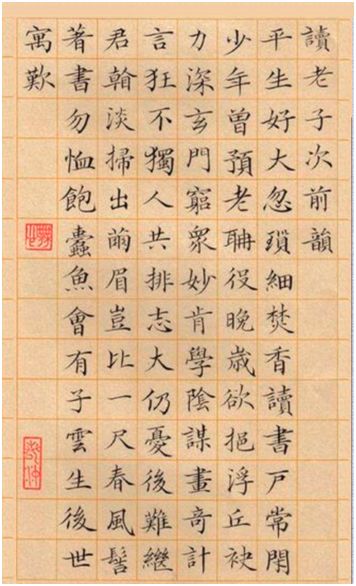 讀老子次前韻
平生好大忽瑣細焚香讀書戶常閉
少年曾預老聃役晚歲欲挹浮丘袂
力深玄門窮眾妙肯學陰謀畫奇計
言狂不獨人共排志大仍憂後難繼
君翰淡掃出繭眉豈比一尺春風髻
著書勿恤飽蠹魚會有子雲生後世
寓歎